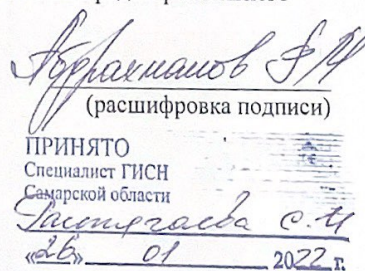 Абдрахманов
(расшифровка подписи)
ПРИНЯТО
Специалист ГИСН
Самарской области
С.И
«26» 01 2022 г.